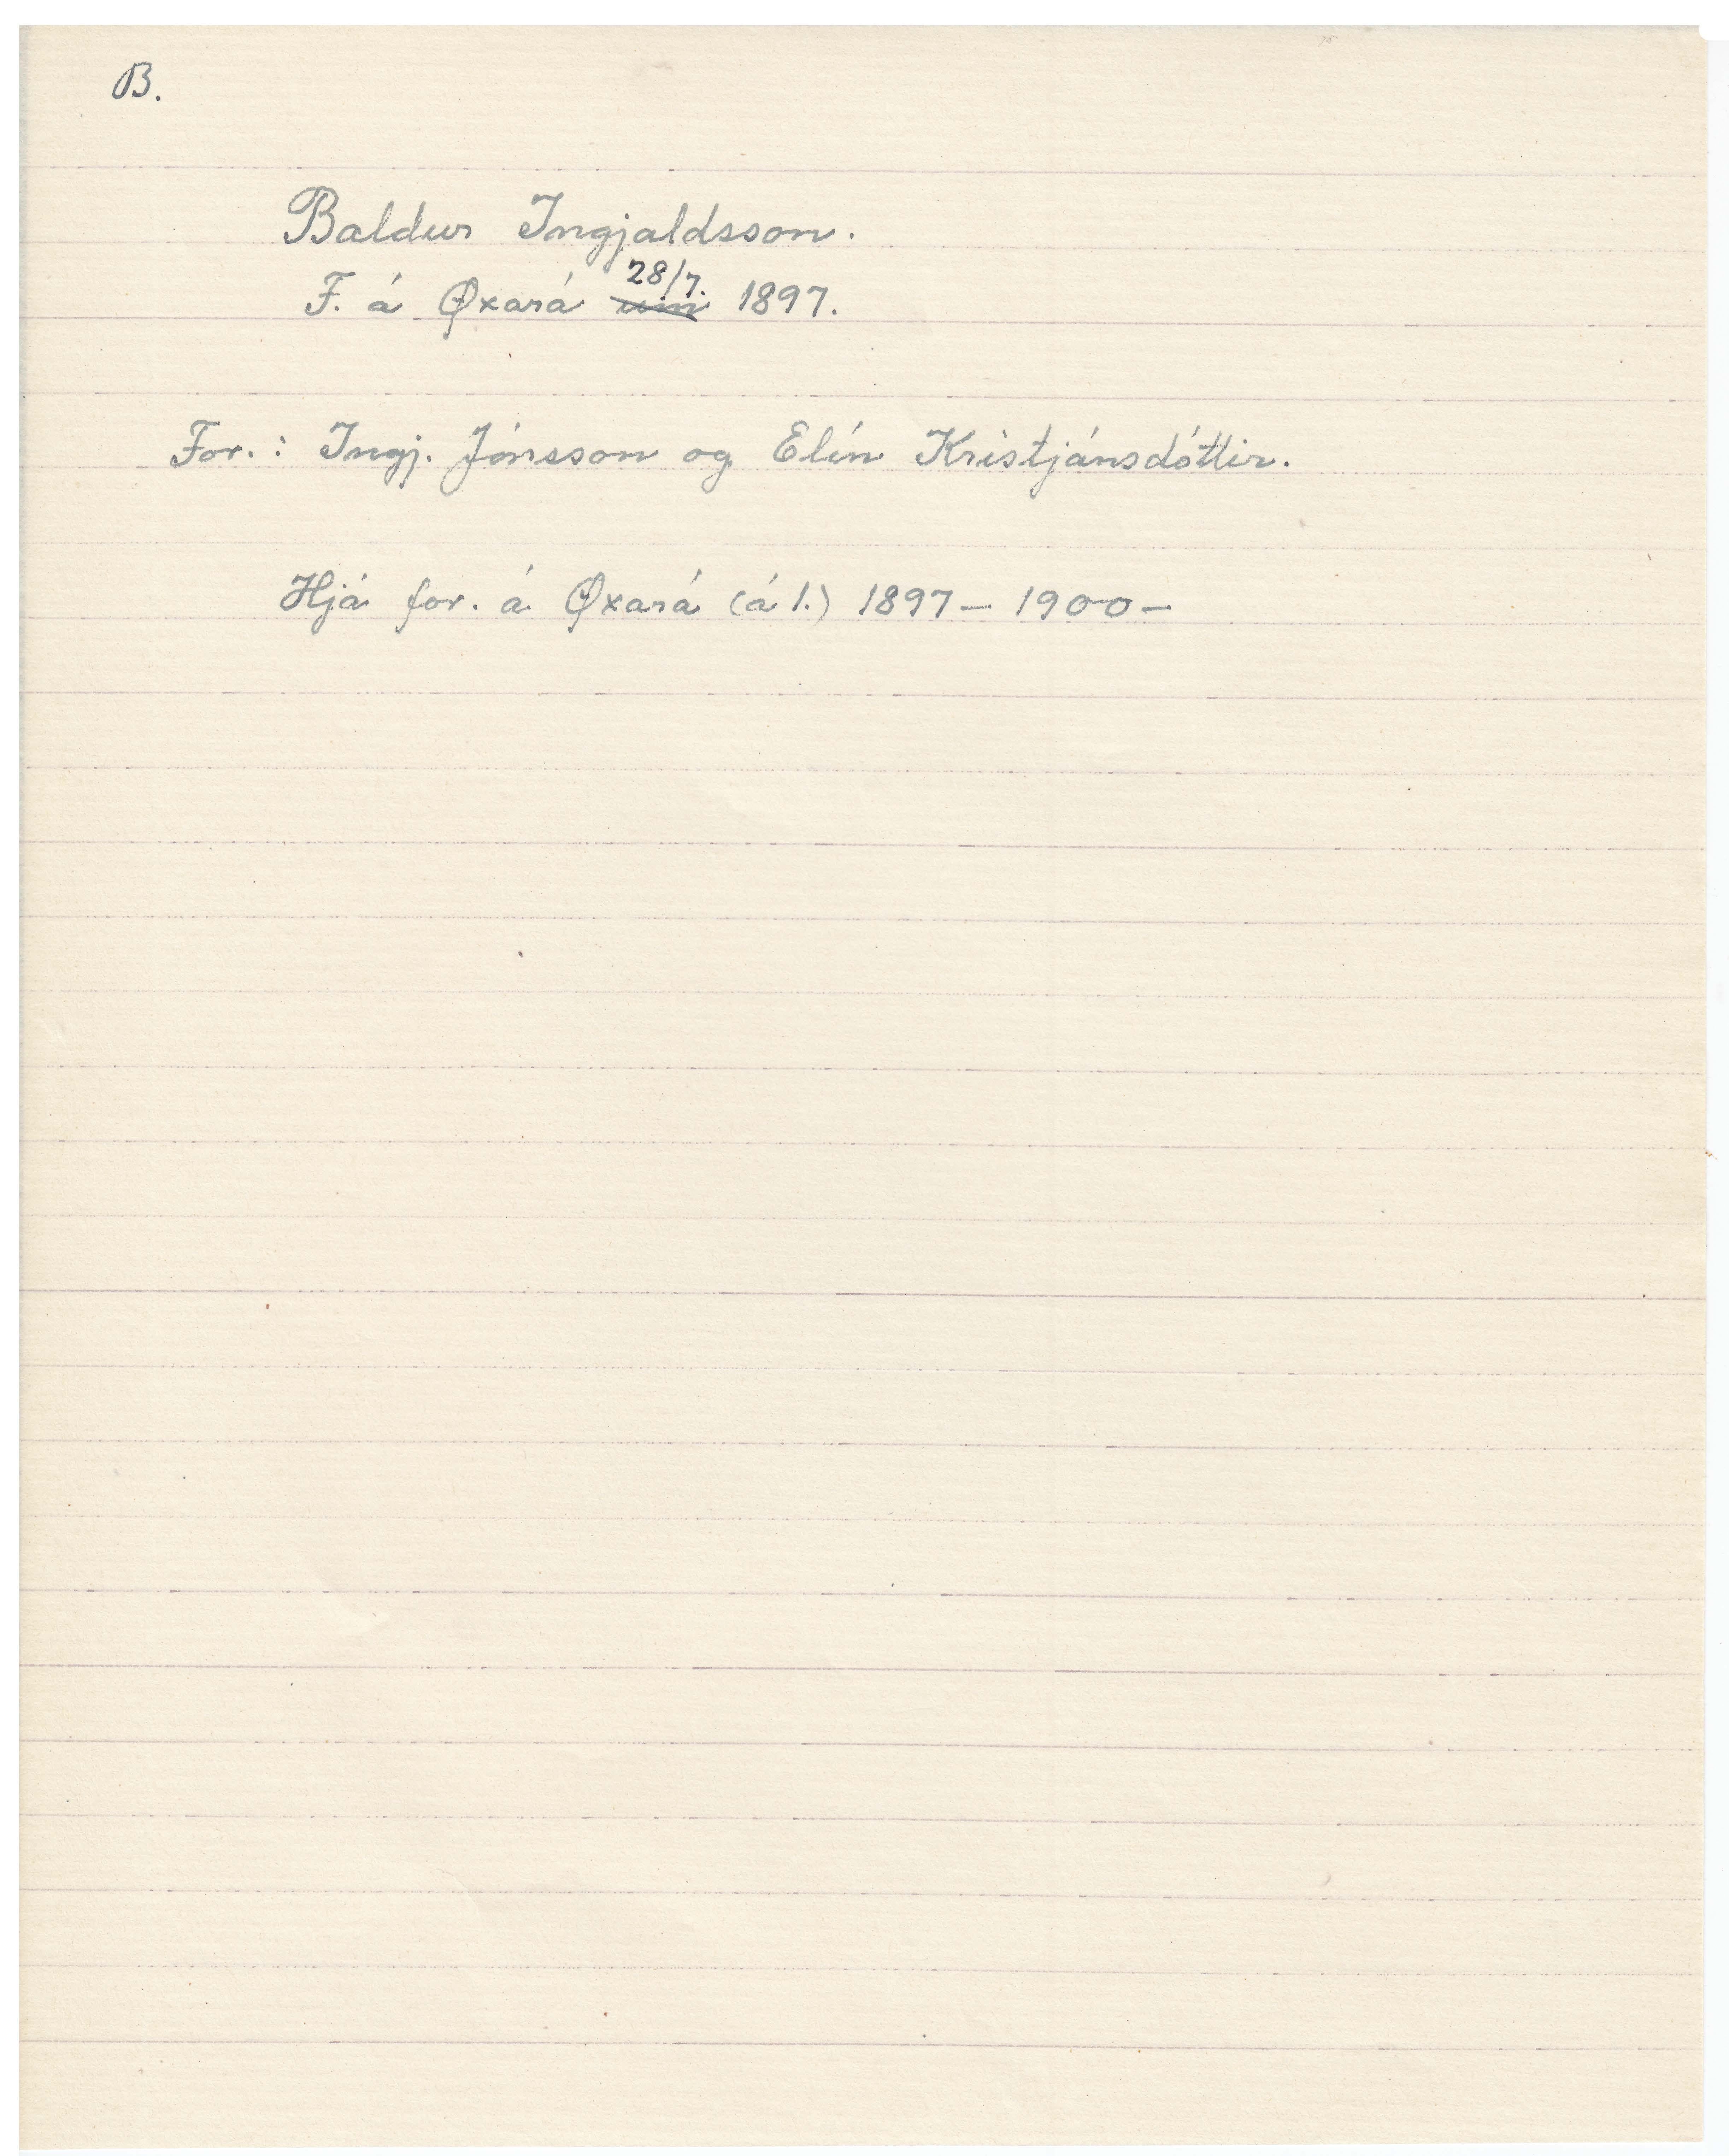 B.
Baldur Ingjaldsson.
F. á Øxará um 28/7. 1897.
For.: Ingj. Jónsson og Elín Kristjánsdóttir.
Hjá for. á Øxará (á l.) 1897 – 1900 –